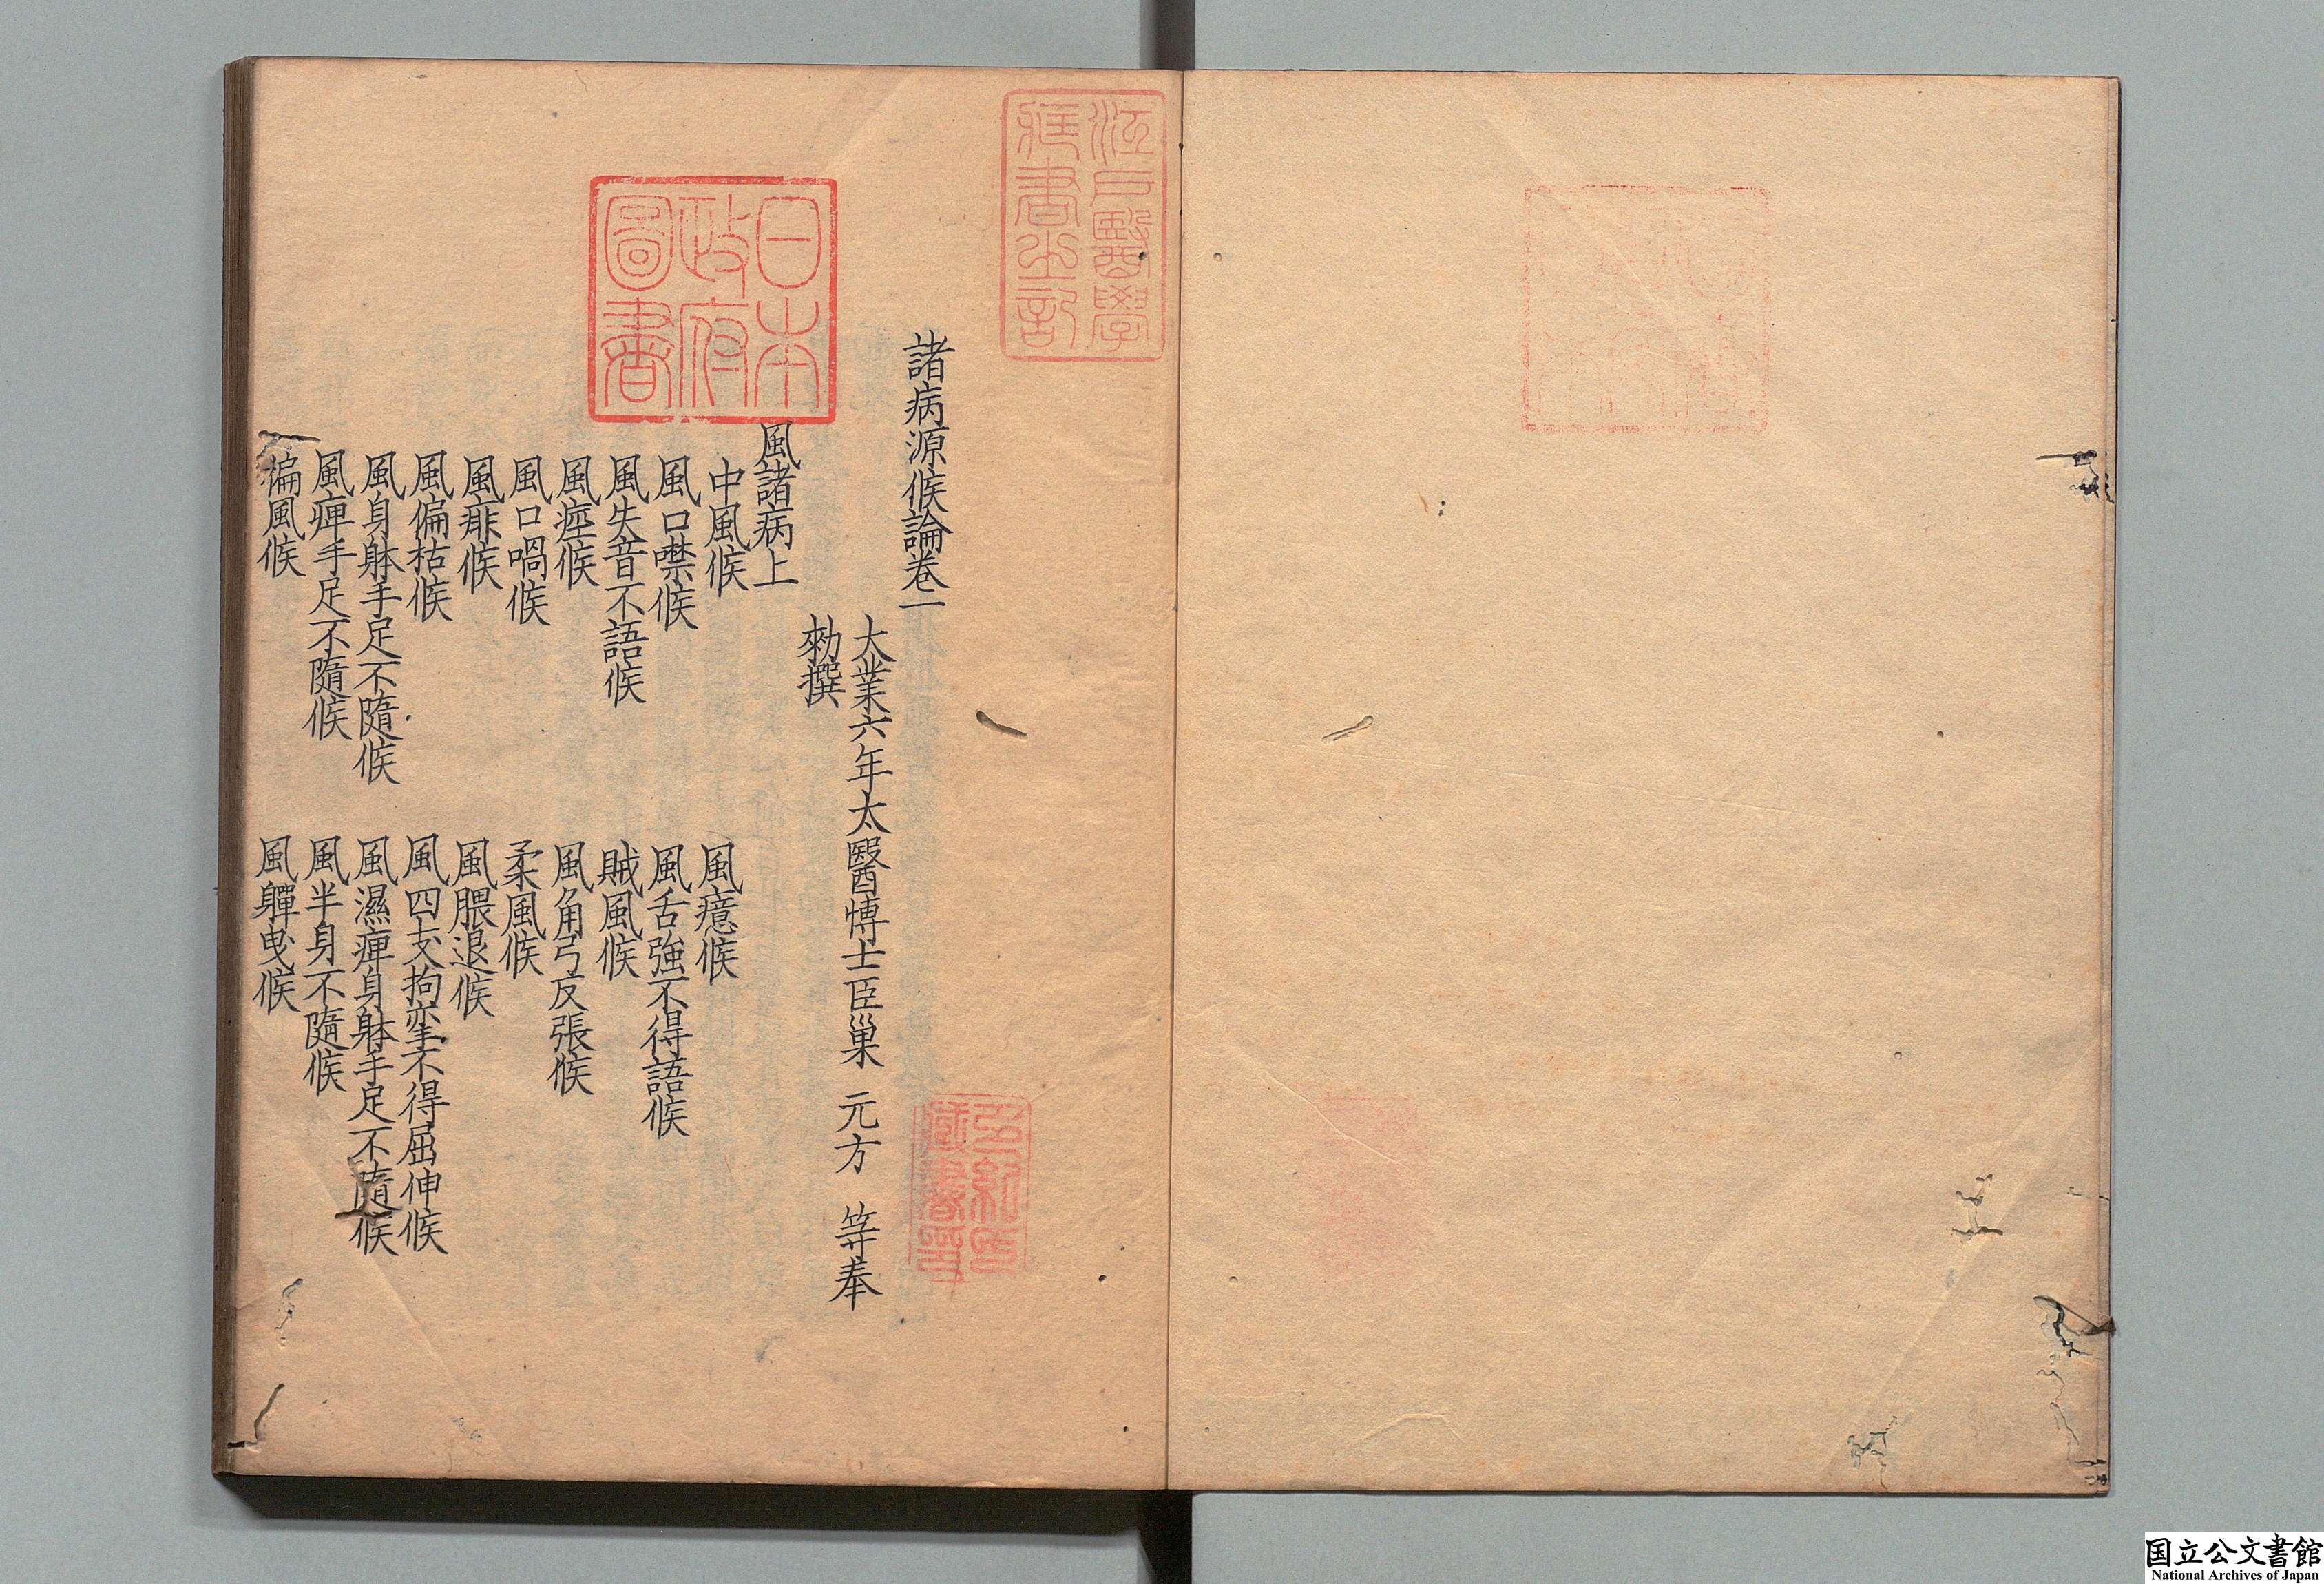 諸病源候論卷一
大業六年太醫博士臣巢 元方 等奉
勑撰
風諸病上
中風候 風癔候
風口噤候 風舌強不得語候
風失音不語候 賊風候
風痙候 風角弓反張候
風口喎候 柔風候
風痱候 風腲退候
風偏枯候 風四支拘挛不得屈伸候
風身躰手足不隨候 風濕痺身躰手足不隨候
風痺手足不隨候 風半身不隨候
偏風候 風軃曳候
江戸醫學
藏書之記
日本
政府
圖書
国立公文書館
National Archives of Japan